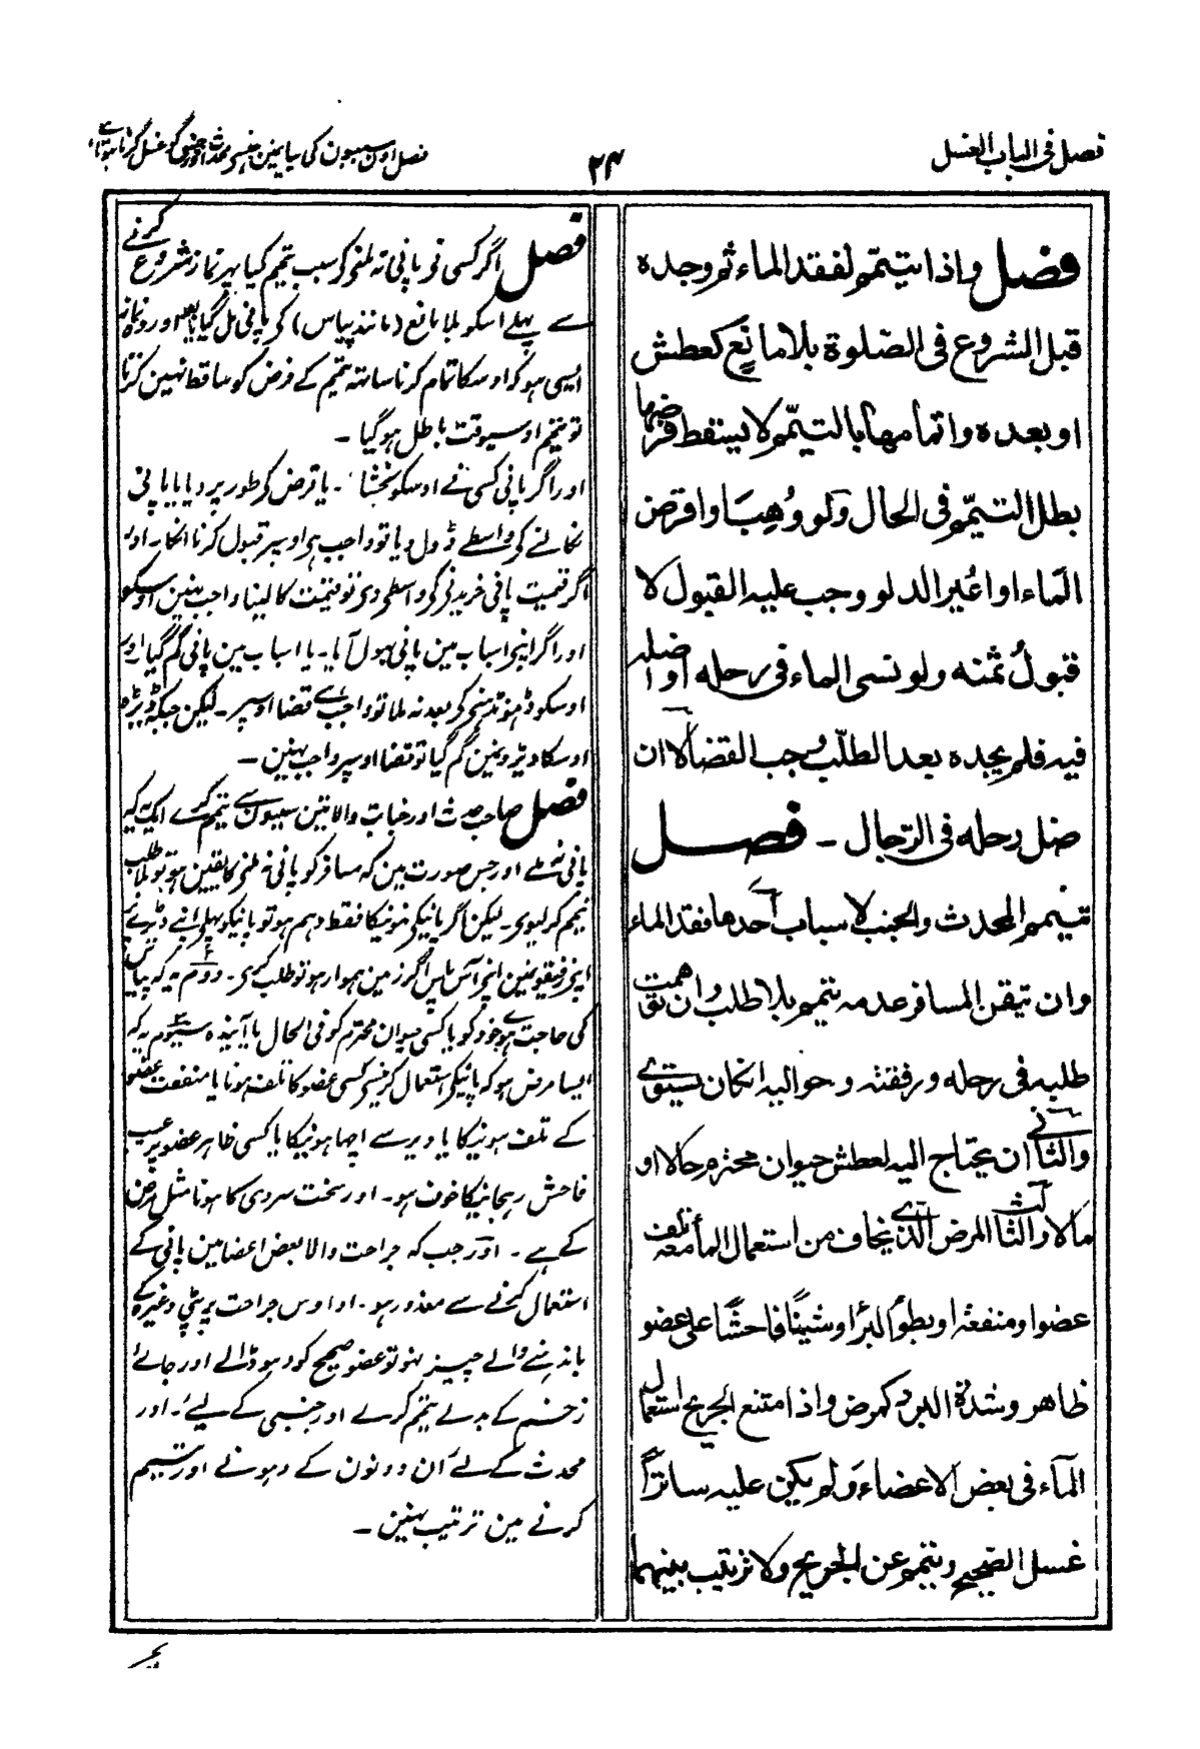 فصل فی الباب الغسل
٢٣
فصل اون سببون کی بیانمین جنسے محدث اور جنبی کو غسل کرنا ہوتا ہے
فصل واذا تیمّم لفقد الماء ثم وجده
قبل الشروع فی الصّلوة بلا مانعٍ کعطش
او بعده واتمامها بالتیمّم لا یسقط فرضها
بطل التیمّم فی الحال ولو وُهِبَ او اقرض
الماء او اُعیر الدلو وجب علیه القبول لا
قبولُ ثمنه ولو نسی الماء فی رحله او اضله
فیه فلم یجده بعد الطلب وجب القضا لا ان
ضل رحله فی الرّحال ـ فصل
تیمم المحدث والجنب لاسباب احدها فقد الماء
وان تیقن المسافر عدمه تیمم بلا طلب وان توهمه
طلبه فی رحله ورفقته وحوالیه انکان بمستوے
والثانے ان یحتاج الیه لعطش حیوان محترم حالا او
مالا والثالث المرض الذے یخاف من استعمال الماء معه تلف
عضو او منفعته او بطؤ البرُ او شینًا فاحشًا علی عضو
ظاهر وشدة البرد کمرض واذا امتنع الجریح استعمال
المآء فی بعض الاعضاء ولم یکن علیه ساترًا
غسل الصحیح وتیمم عن الجریح ولا ترتیب بینهما
فصل اگر کسی نے پانی نہ ملنے کے سبب تیمم کیا پہر نماز شروع کرنے
سے پہلے اسکو بلا مانع (مانند پیاس) کے پانی مل گیا یا بعد اور نماز
ایسی ہو کہ اوسکا تمام کرنا ساتہ تیمم کے فرض کو ساقط نہین کرتا
تو تیمم اوسیوقت باطل ہو گیا ـ
اور اگر پانی کسی نے اوسکو بخشا ـ یا قرض کے طور پر دیا یا پانی
نکالنے کے واسطے ڈول دیا تو واجب ہے اوسپر قبول کرنا انکا ـ اور
اگر قیمت پانی خریدنے کے واسطے دی تو قیمت کا لینا واجب نہین اوسکو
اور اگر اپنے اسباب مین پانی بہول آیا ـ یا اسباب مین پانی گم گیا اور
اوسکو ڈہونڈہنے کے بعد نہ ملا تو واجب ہے قضا اوسپر ـ لیکن جبکہ ڈیرہ
اوسکا ڈیرونمین گم گیا تو قضا اوسپر واجب نہین ـ
فصل صاحب حدث اور جنابت والا تین سببون سے تیمم کرے ایک یہ کہ
پانی نہ ملے اور جس صورت مین کہ مسافر کو پانی نہ ملنے کا یقین ہو تو بلا طلب
تیمم کر لیوے ـ لیکن اگر پانیکے نہونیکا فقط وہم ہو تو پانیکو پہلے اپنے ڈیرے
اپنے رفیقونمین اپنے آس پاس اگر زمین ہموار ہو تو طلب کرے ـ دوّم یہ کہ پیاس
کی حاجت ہے خود کو یا کسی حیوان محترم کو فی الحال یا آیندہ سیوم یہ کہ
ایسا مرض ہو کہ پانیکے استعمال کرنیسے کسی عضو کا تلف ہونا یا منفعت عضو
کے تلف ہونیکا یا دیر سے اچہا ہونیکا یا کسی ظاہر عضو پر عیب
فاحش رہجانیکا خوف ہو ـ اور سخت سردی کا ہونا مثل مرض
کے ہے ـ اور جب کہ جراحت والا بعض اعضا مین پانی کے
استعمال کرنے سے معذور ہو ـ اور اوس جراحت پر پٹی وغیرہ کے
باندہنے والے چیز نہو تو عضو صحیح کو دہو ڈالے اور جائے
زخم کے بدلے تیمم کرے اور جنبی کے لیے ـ اور
محدث کے لئے ان دونون کے دہونے اور تیمم
کرنے مین ترتیب نہین ـ